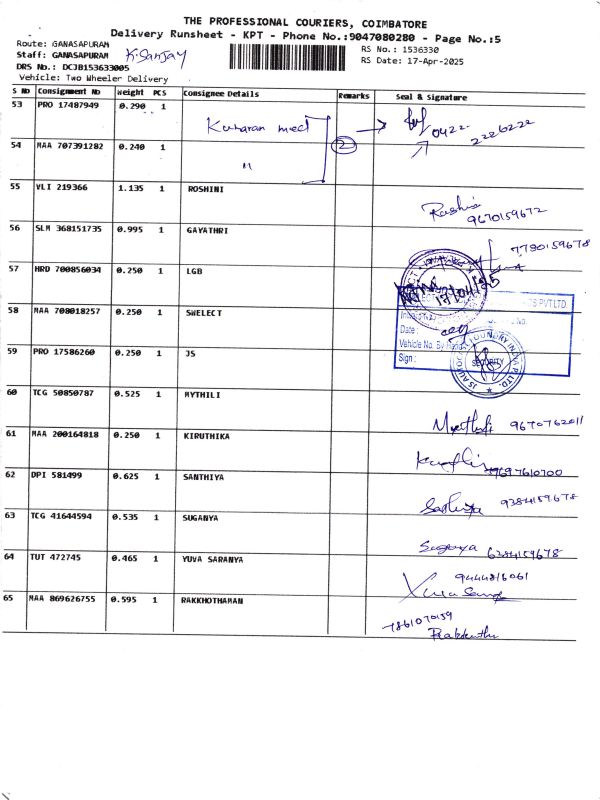 THE PROFESSIONAL COURIERS, COIMBATORE
Delivery Runsheet - KPT - Phone No.:9047080280 - Page No.:5
Route: GANASAPURAM
Staff: GANASAPURAM K.Sanjay
DRS No.: DCJB153633005
Vehicle: Two Wheeler Delivery
RS No.: 1536330
RS Date: 17-Apr-2025
S No Consignment No Weight PCS Consignee Details Remarks Seal & Signature
53 PRO 17487949 0.290 1 0422-2226222
54 MAA 707391282 0.240 1 " 2
55 VLI 219366 1.135 1 ROSHINI 9670159672
56 SLM 368151735 0.995 1 GAYATHRI 7780159678
57 HRD 700856034 0.250 1 LGB 17/04/25
58 MAA 708018257 0.250 1 SWELECT
DS PVT LTD.
Date :
Vehicle No.
Sign :
SECURITY
59 PRO 17586260 0.250 1 JS
60 TCG 50850787 0.525 1 MYTHILI 9670762011
61 MAA 200164818 0.250 1 KIRUTHIKA 9697610700
62 DPI 581499 0.625 1 SANTHIYA 9384159678
63 TCG 41644594 0.535 1 SUGANYA Suganya 6384159678
64 TUT 472745 0.465 1 YUVA SARANYA 9444816061
65 MAA 869626755 0.595 1 RAKKHOTHAMAN 7861070159